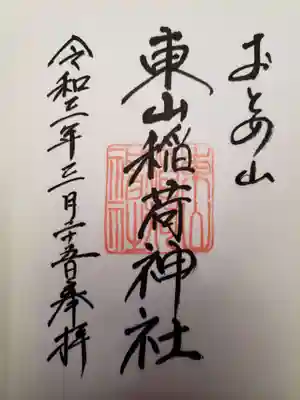 おとめ山
東山稲荷神社
令和二年三月二十五日奉拝